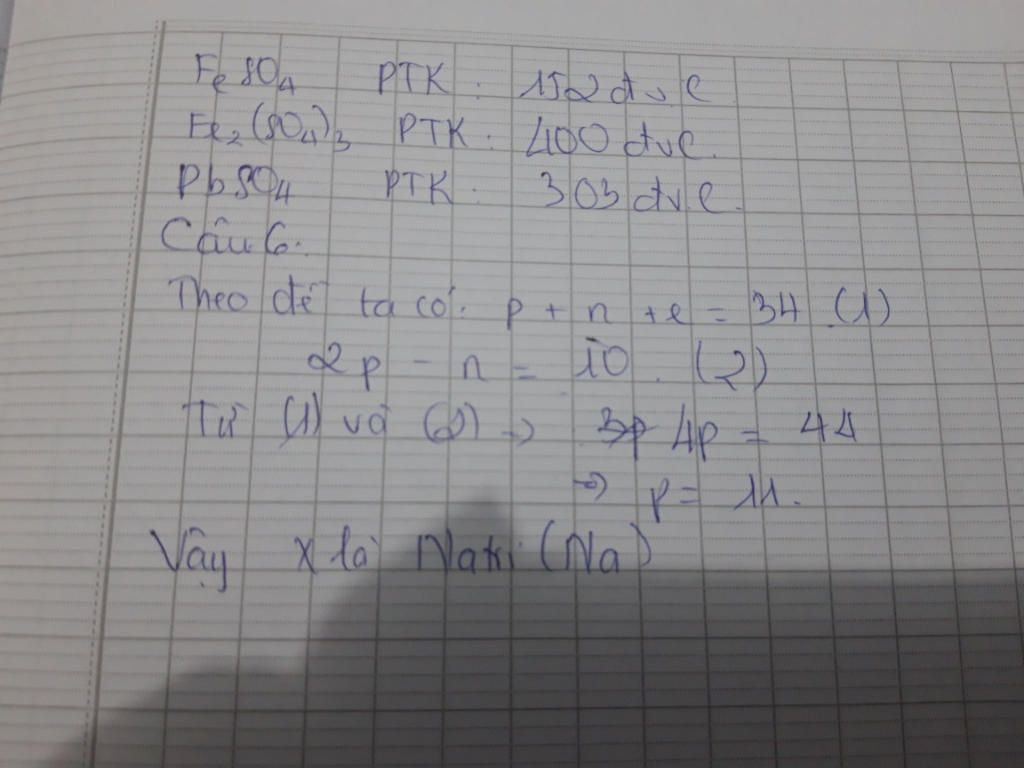 FeSO4 PTK: 152 đvC
Fe2(SO4)3 PTK: 400 đvC.
PbSO4 PTK: 303 đvC.
Câu 6:
Theo đề ta có: p + n + e = 34 (1)
2p - n = 10. (2)
Từ (1) và (2) → 3p 4p = 44
→ p = 11.
Vậy X là Natri (Na)